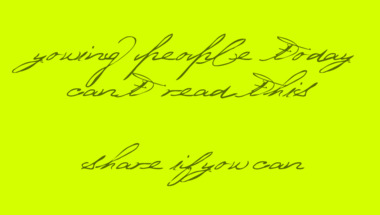 young people today
can't read this
share if you can